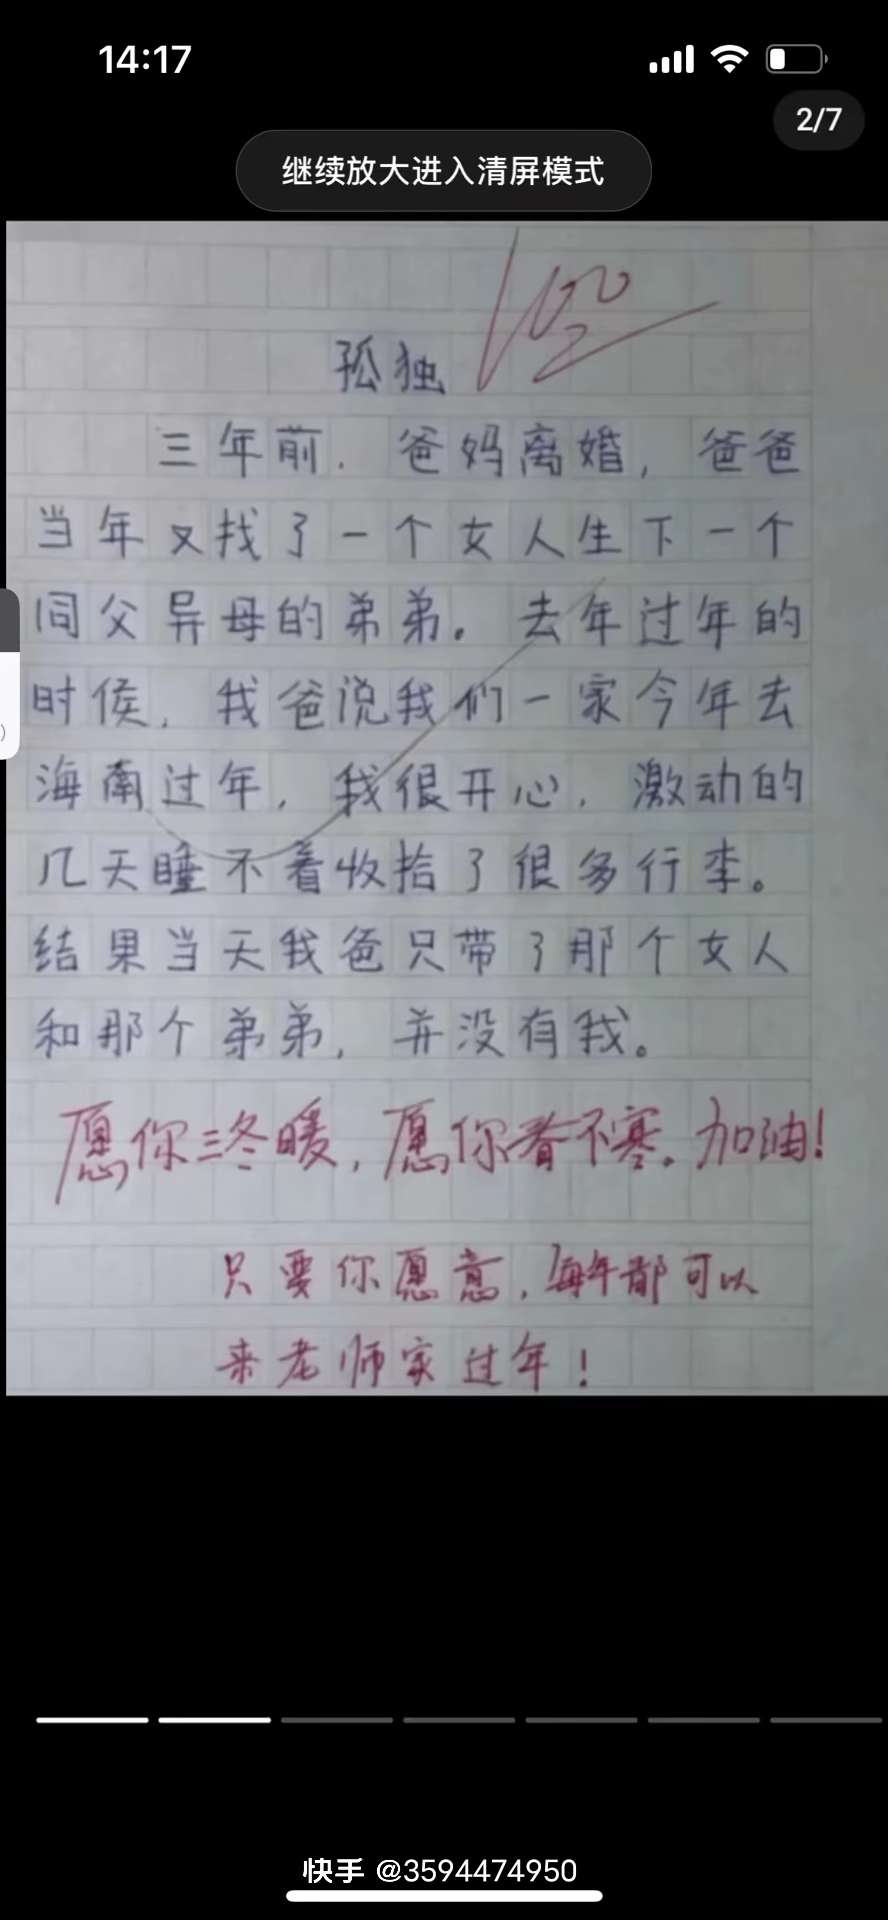 14:17
2/7
继续放大进入清屏模式
100
孤独
三年前，爸妈离婚，爸爸
当年又找了一个女人生下一个
同父异母的弟弟。去年过年的
时侯，我爸说我们一家今年去
海南过年，我很开心，激动的
几天睡不着收拾了很多行李。
结果当天我爸只带了那个女人
和那个弟弟，并没有我。
愿你三冬暖，愿你春不寒。加油！
只要你愿意，每年都可以
来老师家过年！
快手 @3594474950